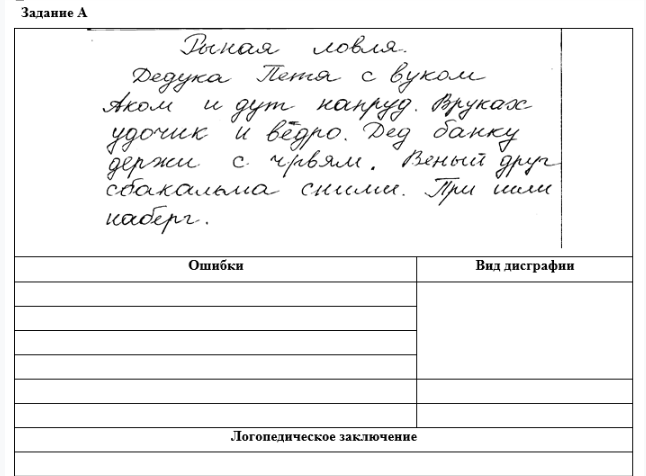 Задание А
Рыная ловля.
Дедука Петя с вуком
Аком и дут напруд. Вруках
удочик и вёдро. Дед банку
держи с чрвям. Веный друг
сбакальма сними. При шли
наберг.
Ошибки Вид дисграфии
Логопедическое заключение